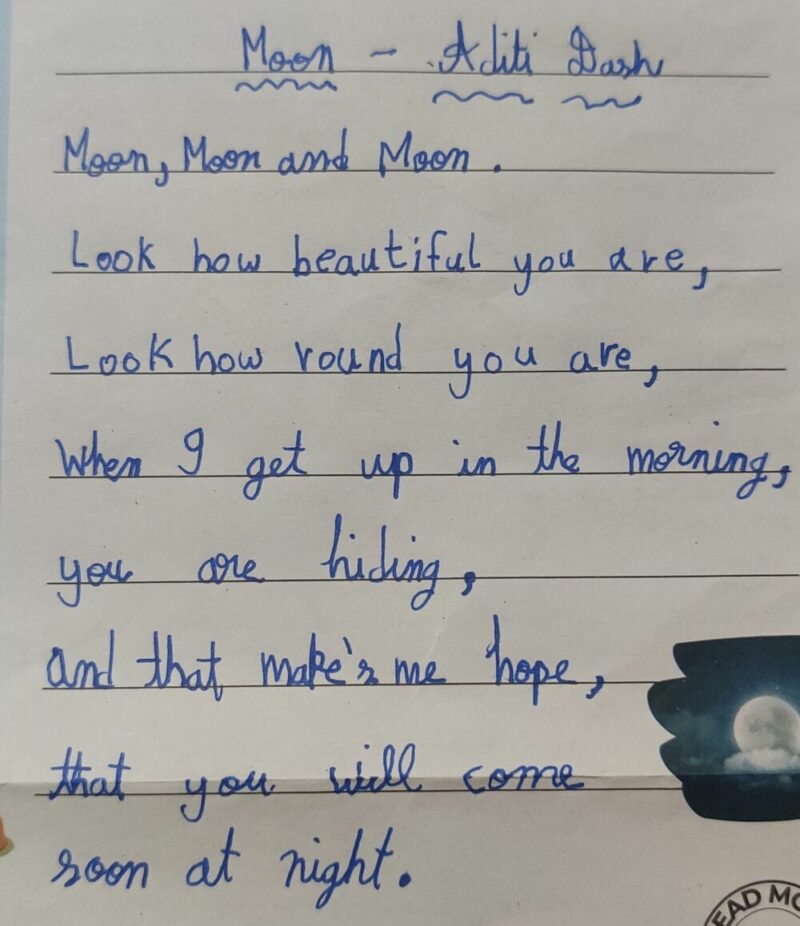 Moon - Aditi Dash
Moon, Moon and Moon.
Look how beautiful you are,
Look how round you are,
When I get up in the morning,
you are hiding,
and that make's me hope,
that you will come
soon at night.
EAD MO